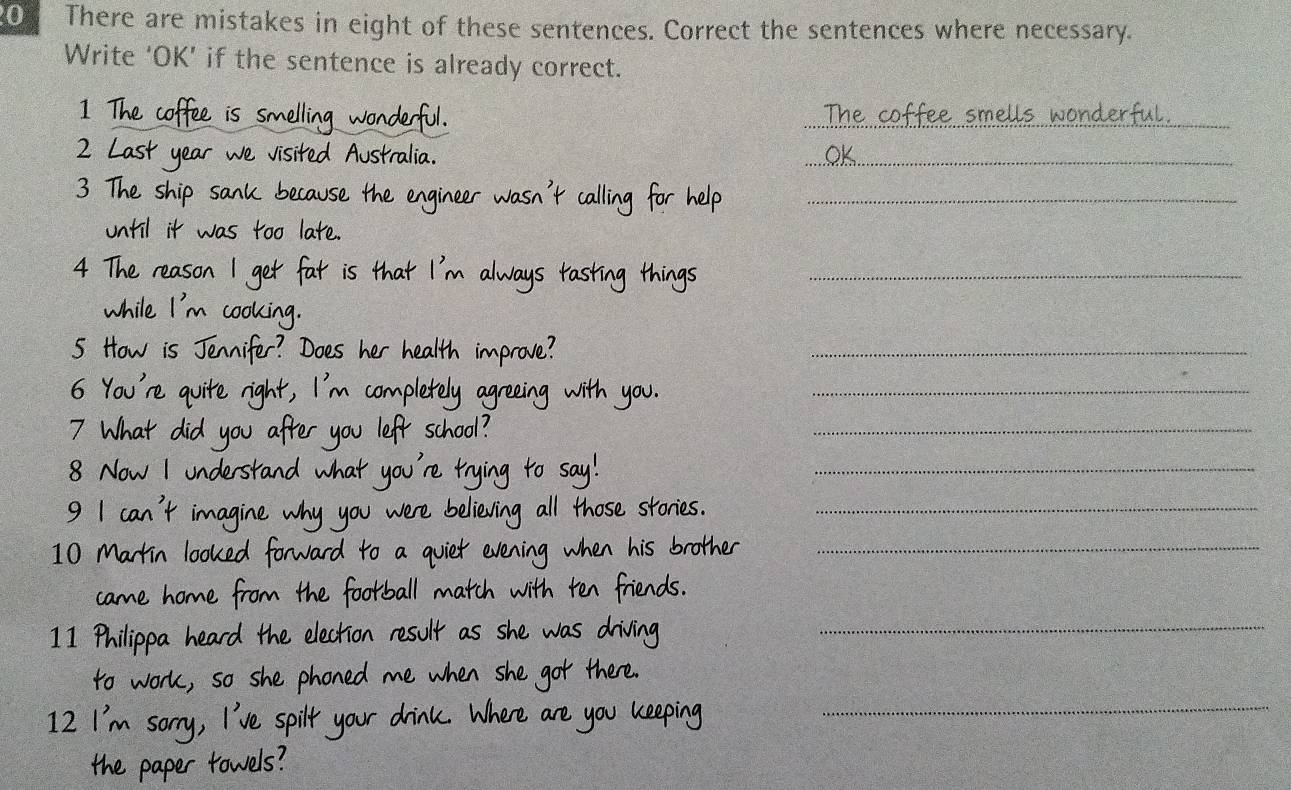 20 There are mistakes in eight of these sentences. Correct the sentences where necessary.
Write 'OK' if the sentence is already correct.
1 The coffee is smelling wonderful. The coffee smells wonderful.
2 Last year we visited Australia. OK
3 The ship sank because the engineer wasn't calling for help
until it was too late.
4 The reason I get fat is that I'm always tasting things
while I'm cooking.
5 How is Jennifer? Does her health improve?
6 You're quite right, I'm completely agreeing with you.
7 What did you after you left school?
8 Now I understand what you're trying to say!
9 I can't imagine why you were believing all those stories.
10 Martin looked forward to a quiet evening when his brother
came home from the football match with ten friends.
11 Philippa heard the election result as she was driving
to work, so she phoned me when she got there.
12 I'm sorry, I've spilt your drink. Where are you keeping
the paper towels?